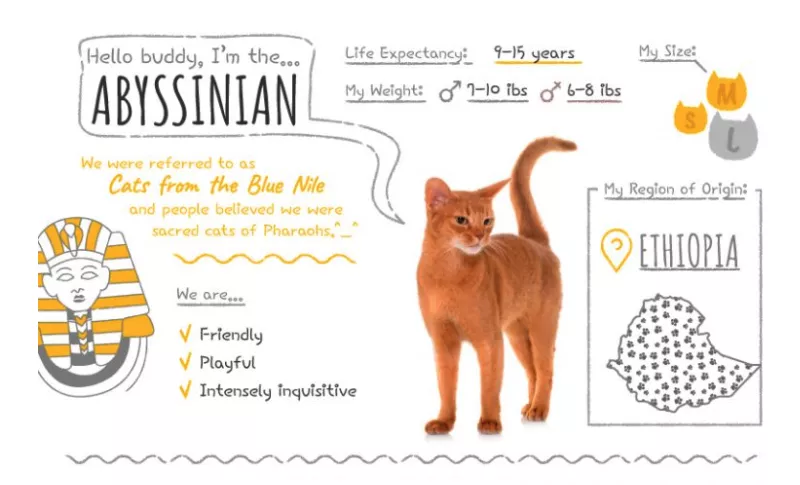 Hello buddy, I'm the...
ABYSSINIAN
Life Expectancy: 9-15 years
My Weight: ♂ 7-10 ibs ♂ 6-8 ibs
My Size:
M
S
L
We were referred to as
Cats from the Blue Nile
and people believed we were
sacred cats of Pharaohs.^_^
We are...
✓ Friendly
✓ Playful
✓ Intensely inquisitive
My Region of Origin:
ETHIOPIA